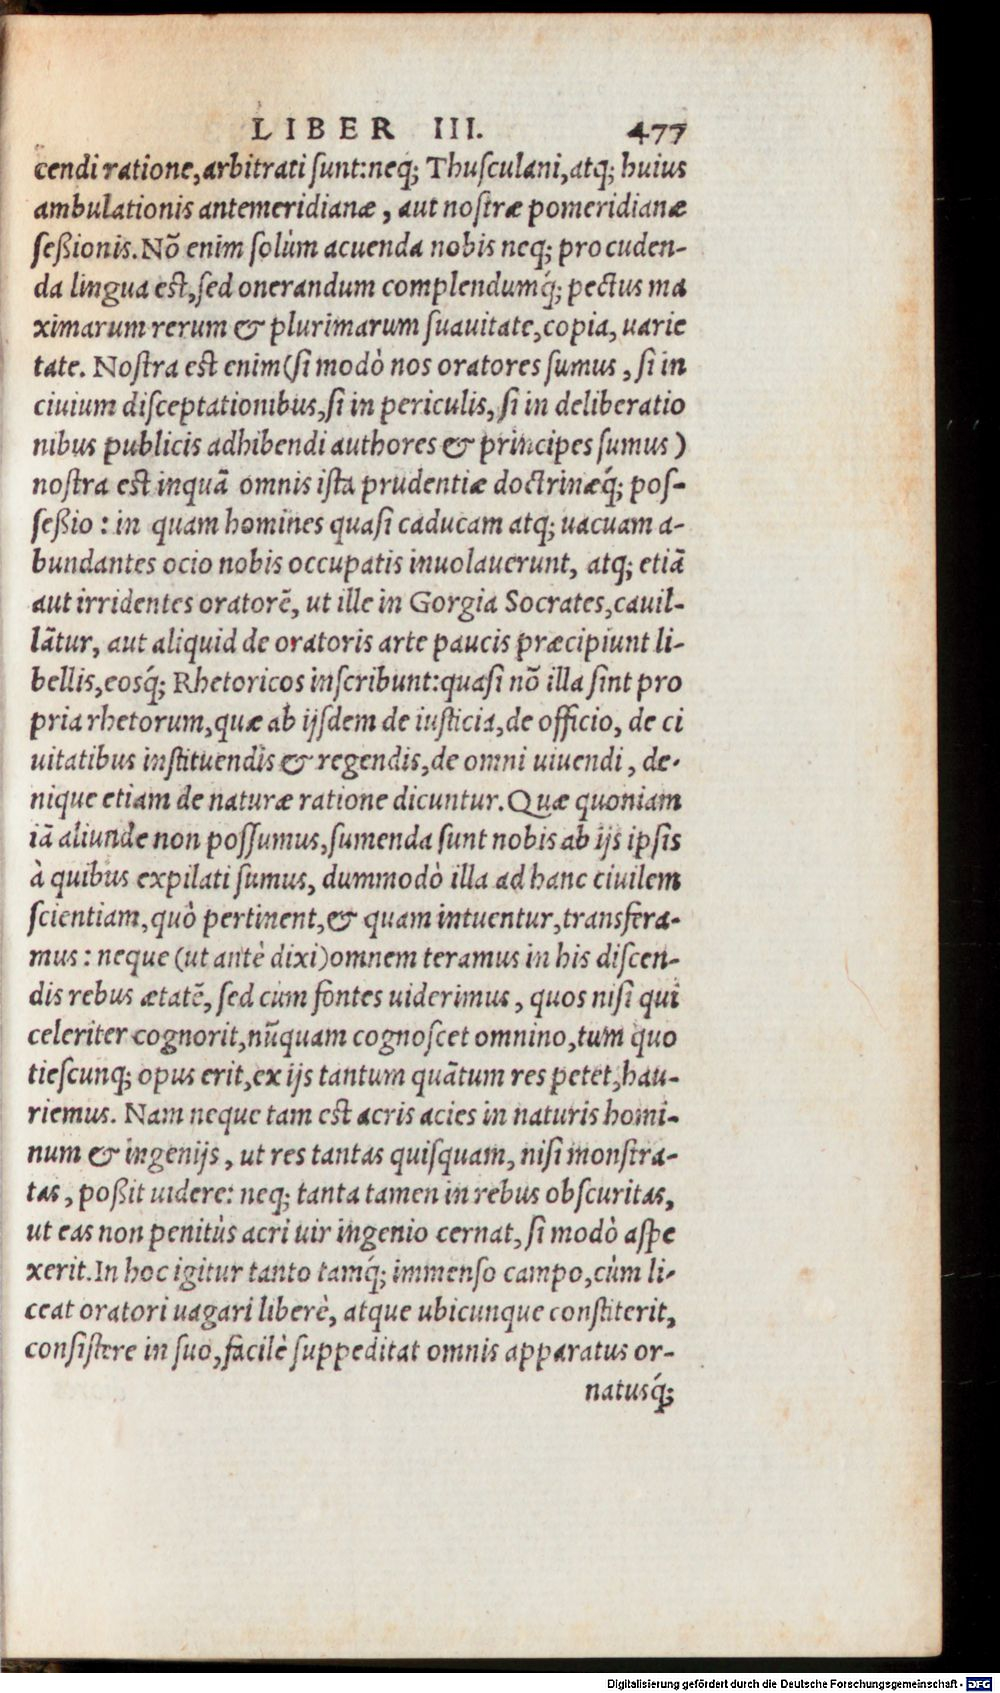 LIBER III. 477
cendi ratione, arbitrati ſunt: neq; Thuſculani, atq; huius
ambulationis antemeridianæ, aut noſtræ pomeridianæ
ſeßionis. Nõ enim ſolùm acuenda nobis neq; procuden-
da lingua eſt, ſed onerandum complendumq́; pectus ma
ximarum rerum & plurimarum ſuauitate, copia, uarie
tate. Noſtra eſt enim (ſi modò nos oratores ſumus, ſi in
ciuium diſceptationibus, ſi in periculis, ſi in deliberatio
nibus publicis adhibendi authores & principes ſumus)
noſtra eſt inquã omnis iſta prudentiæ doctrinæq́; poſ-
ſeßio: in quam homines quaſi caducam atq; uacuam a-
bundantes ocio nobis occupatis inuolauerunt, atq; etiã
aut irridentes oratorẽ, ut ille in Gorgia Socrates, cauil-
lãtur, aut aliquid de oratoris arte paucis præcipiunt li-
bellis, eosq́; Rhetoricos inſcribunt: quaſi nõ illa ſint pro
pria rhetorum, quæ ab ijſdem de iuſticia, de officio, de ci
uitatibus inſtituendis & regendis, de omni uiuendi, de-
nique etiam de naturæ ratione dicuntur. Quæ quoniam
iã aliunde non poſſumus, ſumenda ſunt nobis ab ijs ipſis
à quibus expilati ſumus, dummodò illa ad hanc ciuilem
ſcientiam, quò pertinent, & quam intuentur, transfera-
mus: neque (ut antè dixi) omnem teramus in his diſcen-
dis rebus ætatẽ, ſed cum fontes uiderimus, quos niſi qui
celeriter cognorit, nũquam cognoſcet omnino, tum quo
tieſcunq; opus erit, ex ijs tantum quãtum res petet, hau-
riemus. Nam neque tam eſt acris acies in naturis homi-
num & ingenijs, ut res tantas quiſquam, niſi monſtra-
tas, poßit uidere: neq; tanta tamen in rebus obſcuritas,
ut eas non penitùs acri uir ingenio cernat, ſi modò aſpe
xerit. In hoc igitur tanto tamq́; immenſo campo, cùm li-
ceat oratori uagari liberè, atque ubicunque conſtiterit,
conſiſtere in ſuo, facilè ſuppeditat omnis apparatus or-
natusq́;
Digitalisierung gefördert durch die Deutsche Forschungsgemeinschaft - DFG